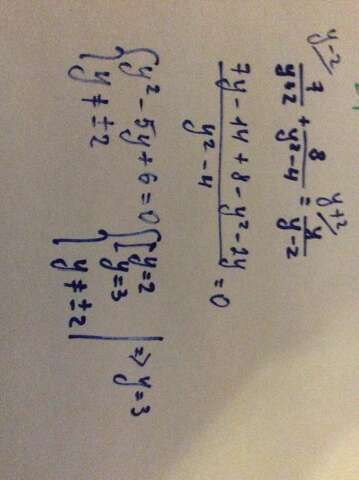 y-2 y+2
7/(y+2) + 8/(y²-4) = y/(y-2)
(7y - 14 + 8 - y² - 2y)/(y² - 4) = 0
{y² - 5y + 6 = 0 {[y = 2 | => y = 3
{y ≠ ±2 [y = 3
{y ≠ ±2